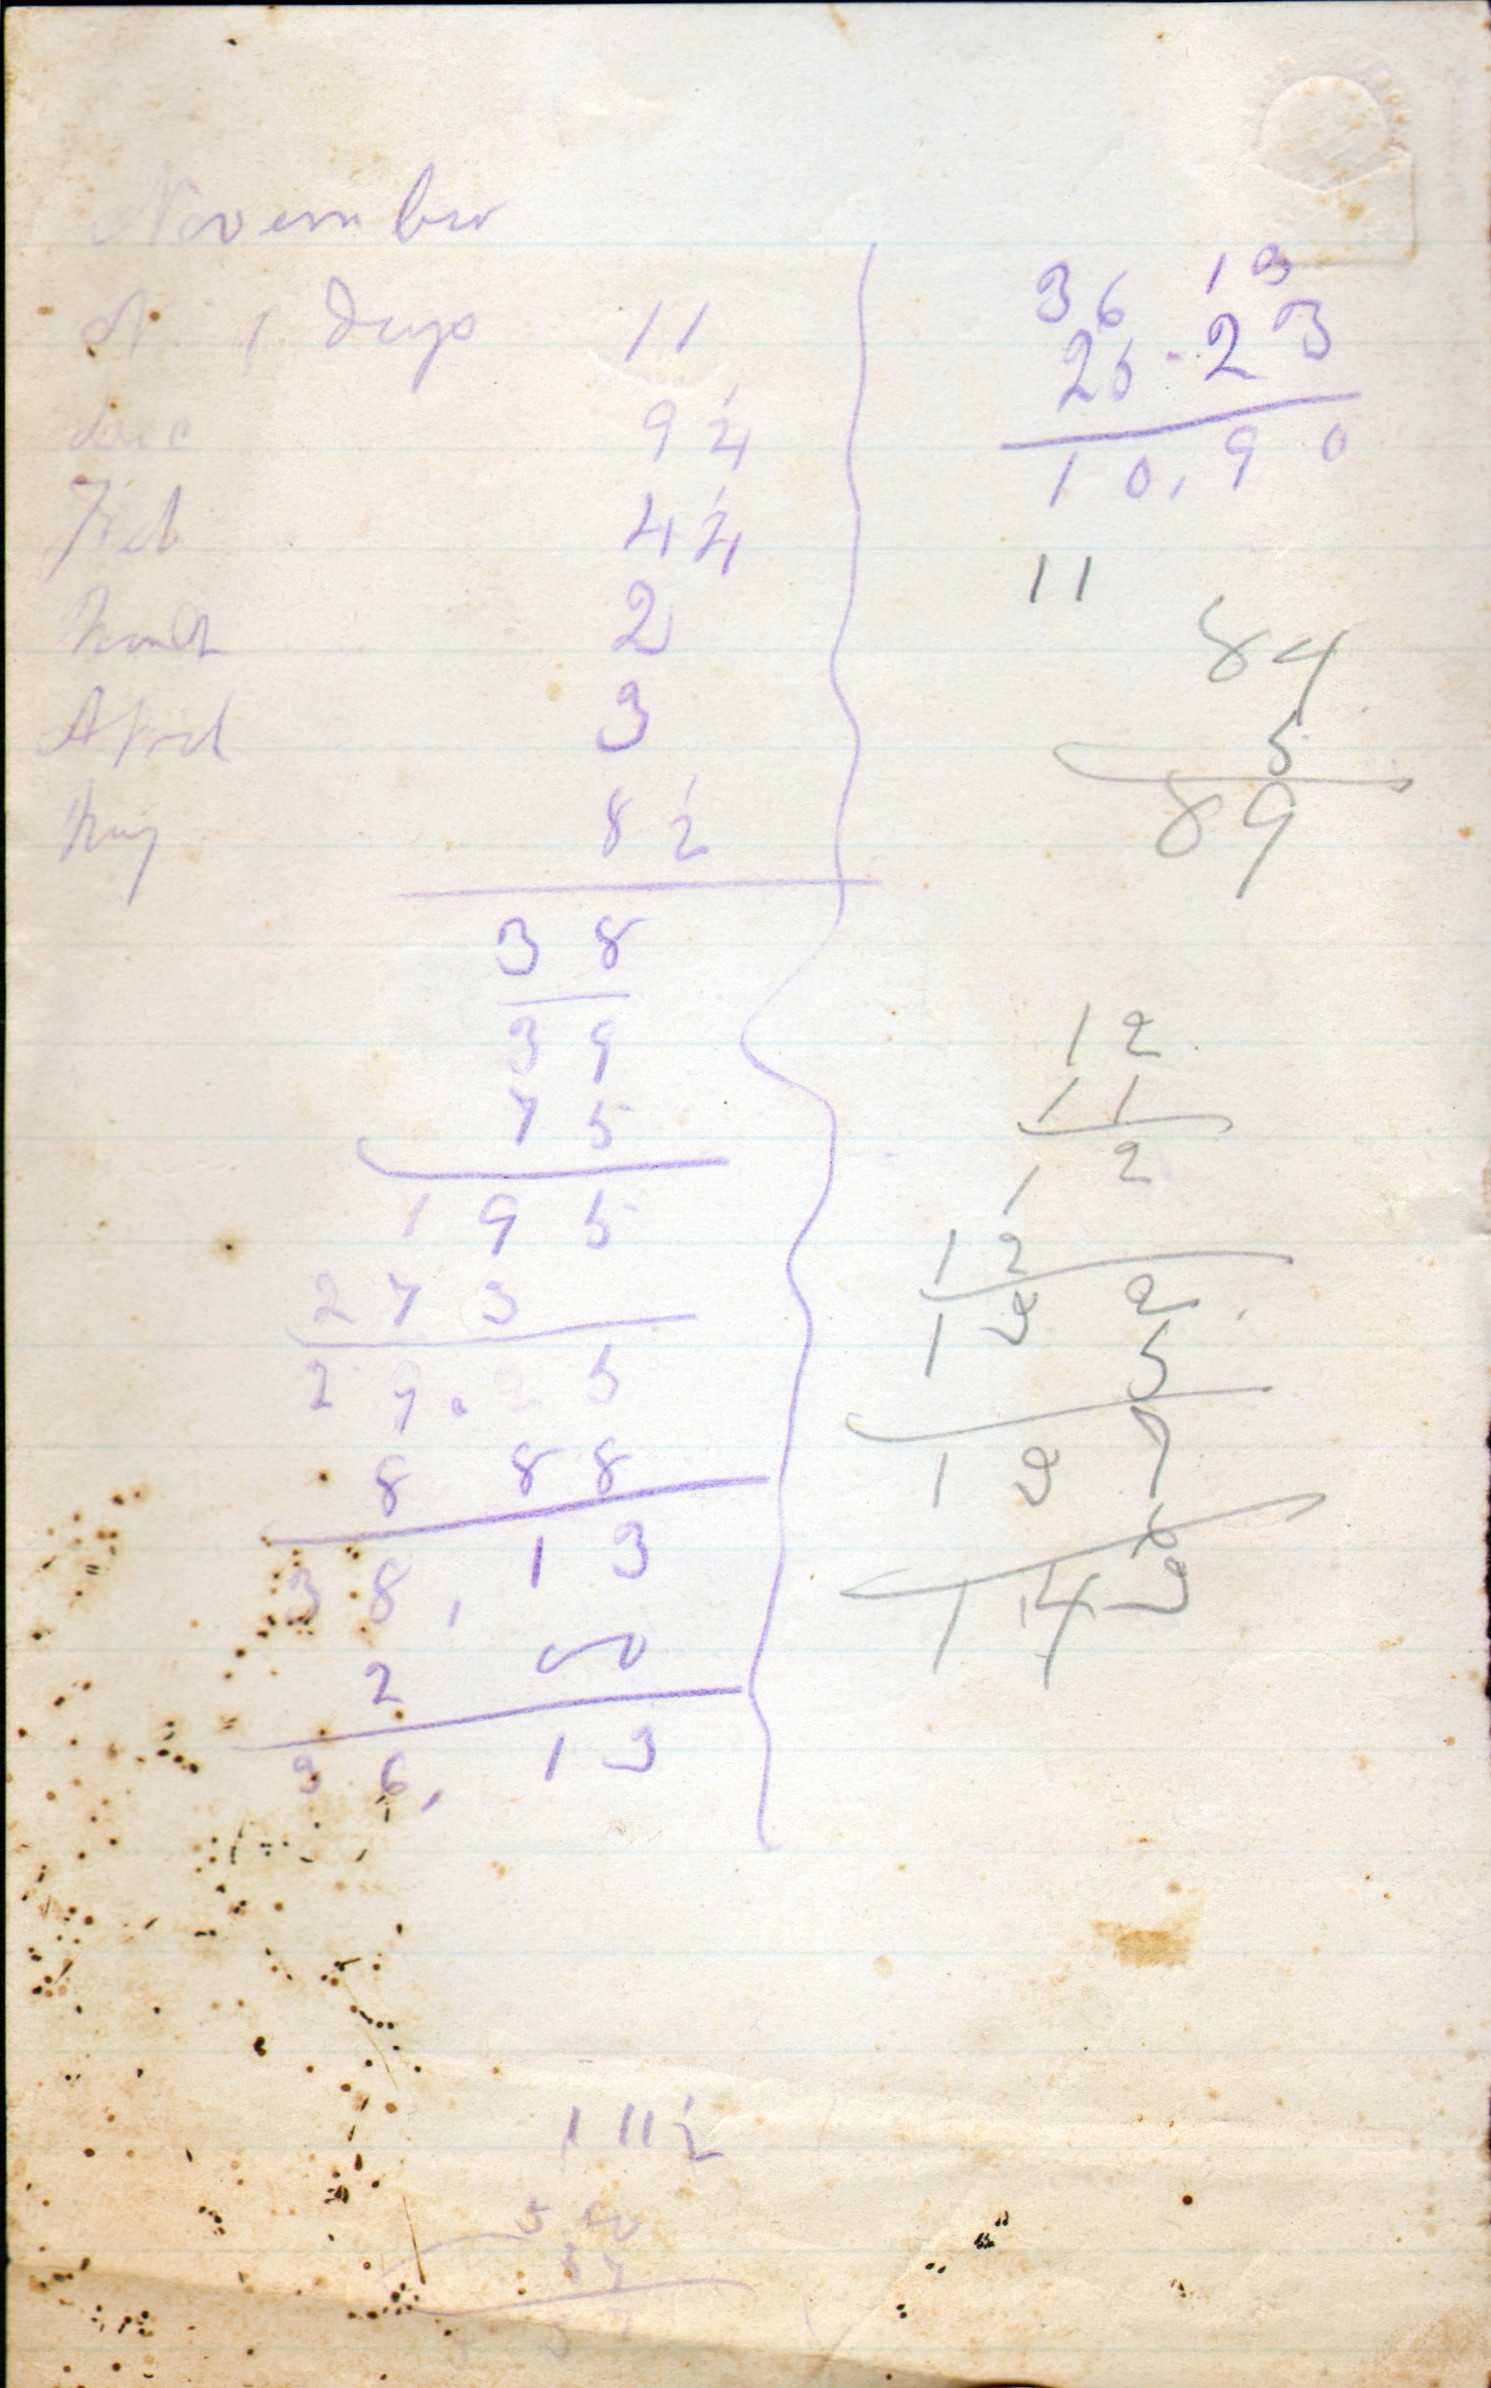 November
days 11
Dec 9 1/4
Feb 4 1/4
March 2
April 3
May 8 1/2
38
39
75
195
273
29.25
8 88
38,13
2 00
36,13
111 1/2
5 00
37
5 37
36 13
25.23
10,90
11
84
5
89
12
11
12
12
132
5
137
6
143